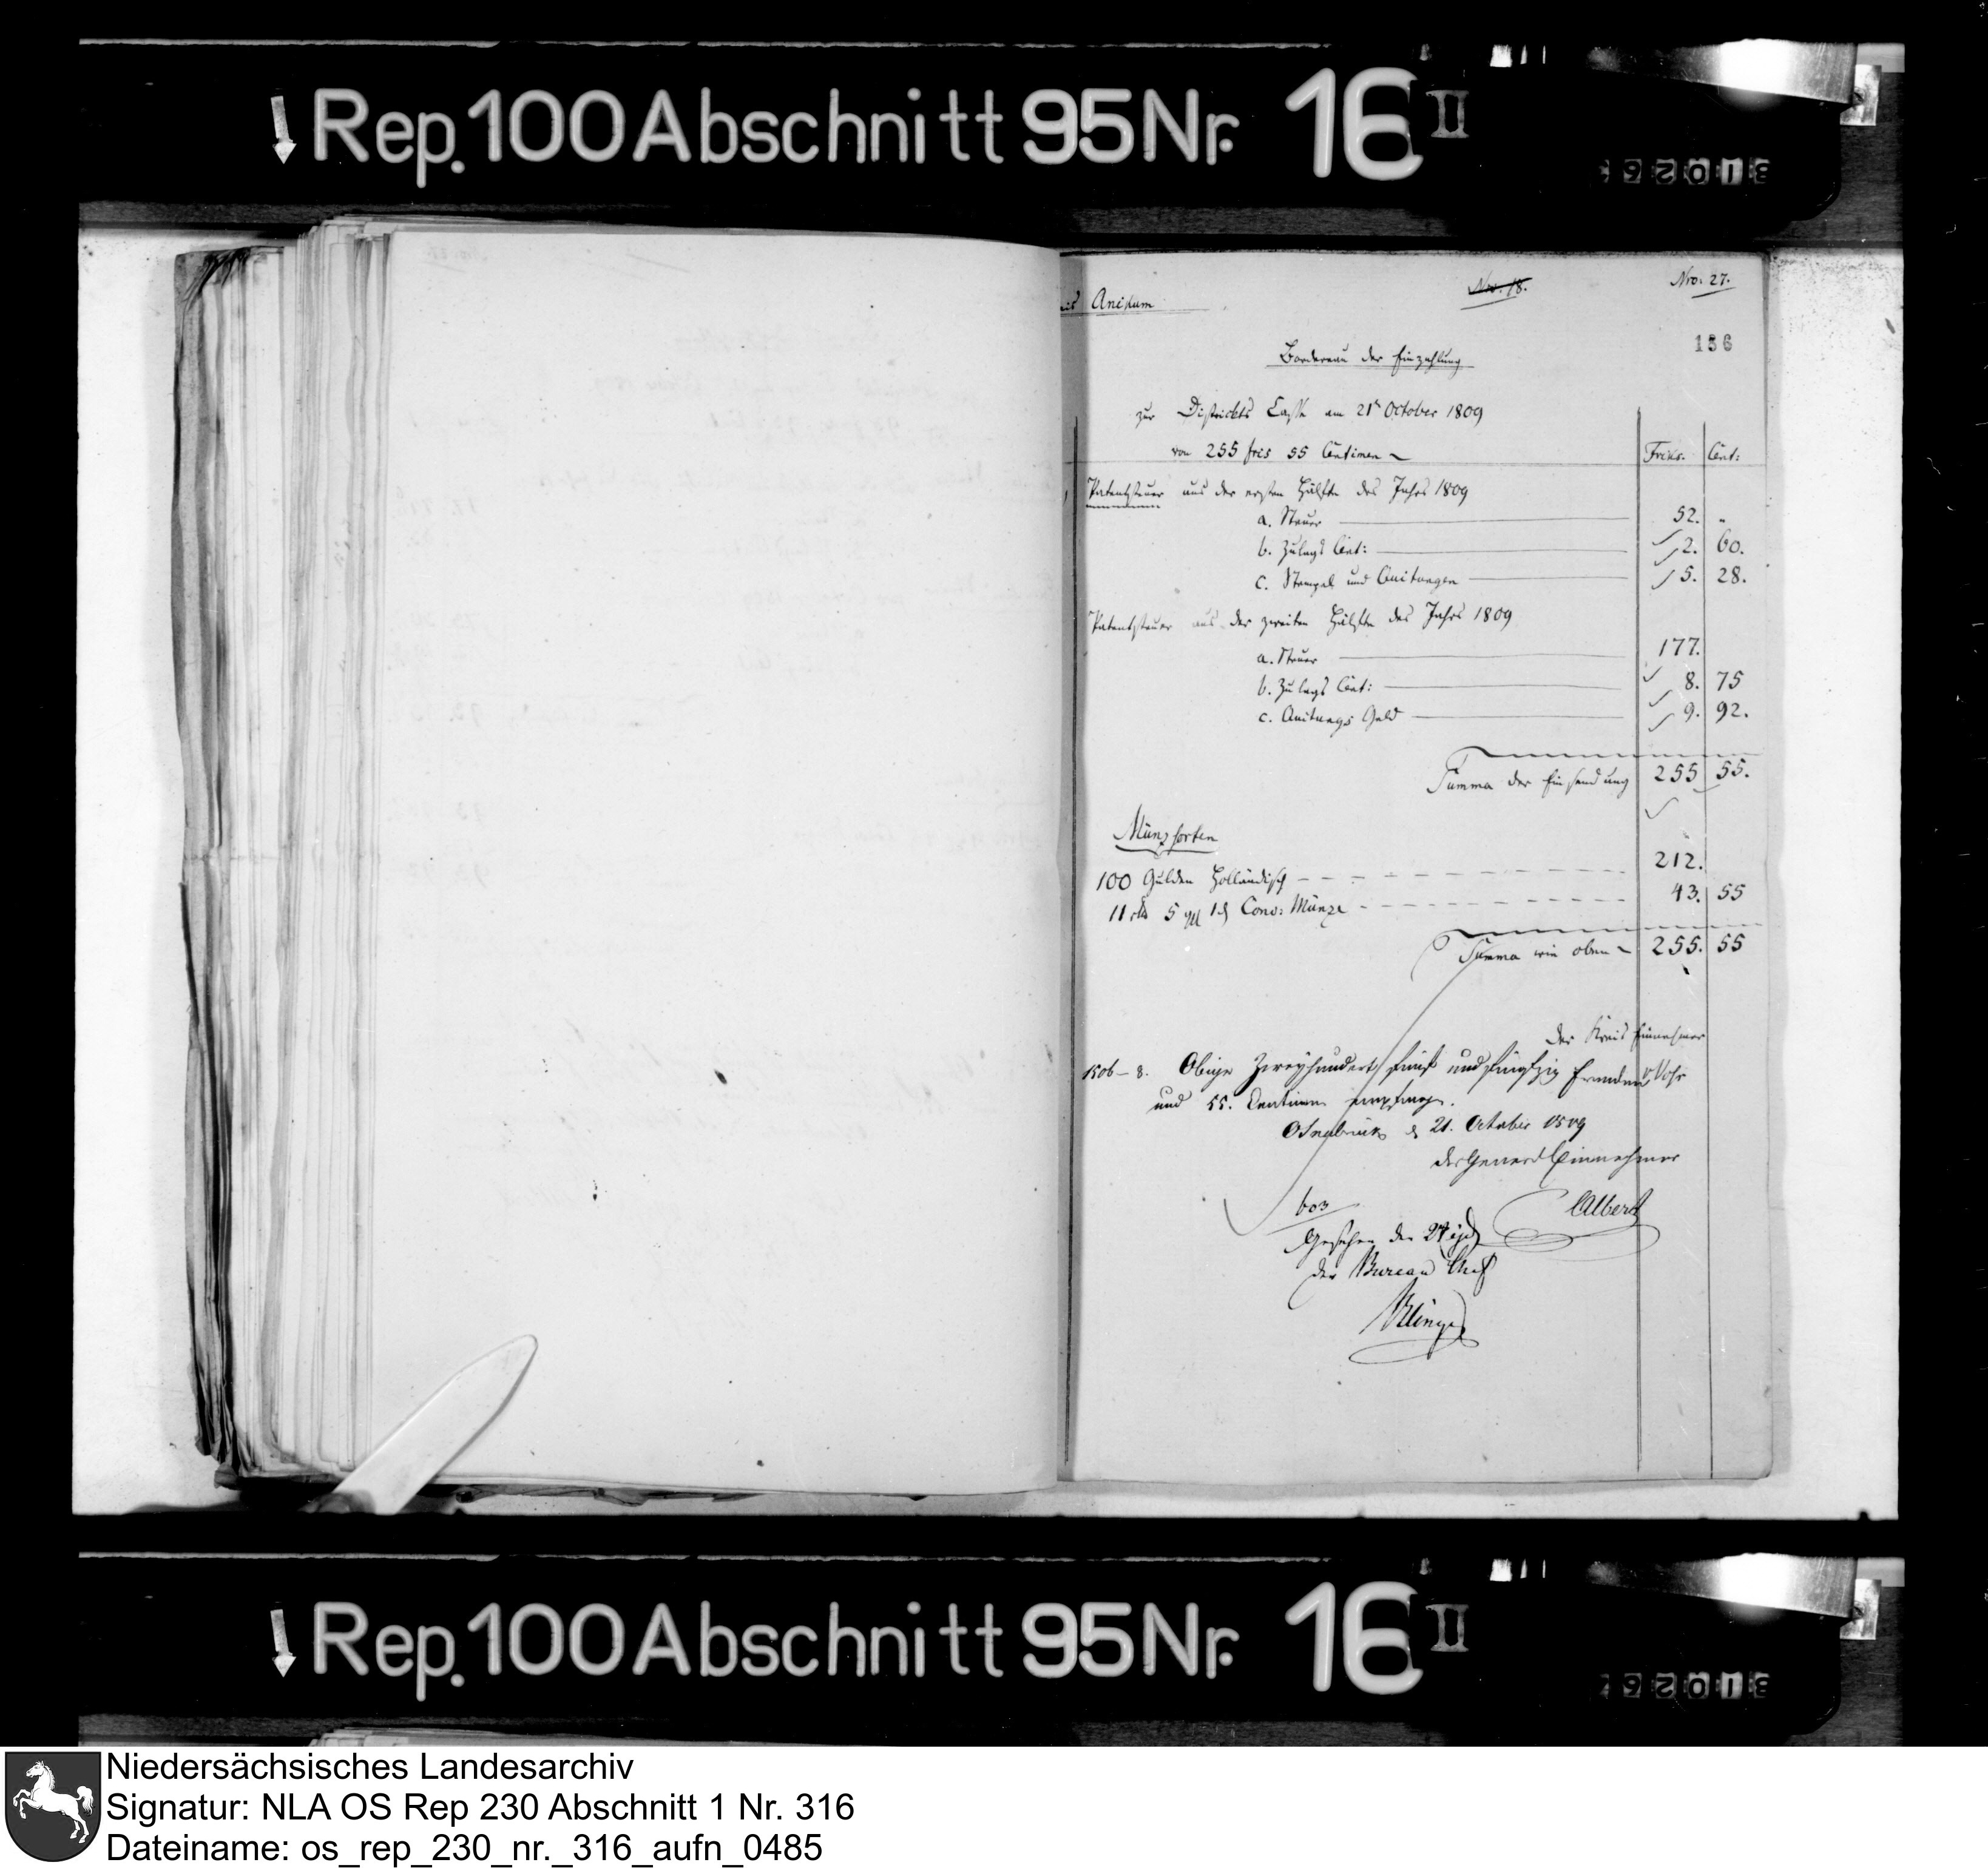 Rep. 100 Abschnitt 95 Nr. 16 II
310262
Ankum
Nro. 18.
Nro. 27.
156
Bordereau der Einzahlung
zur Districkts Casse am 21t October 1809
von 255 frcs 55 Centimen
Frcs. Cent:
Patentsteuer aus der ersten Hälfte des Jahrs 1809
a. Steuer 52. "
b. Zulags Cent: 2. 60.
c. Stempel und Quitungen 5. 28.
Patentsteuer aus der zweiten Hälfte des Jahrs 1809
a. Steuer 177.
b. Zulags Cent: 8. 75
c. Quitungs Geld 9. 92.
Summa der Einsendung 255 55.
Münzsorten
100 Gulden Holländisch 212.
11 rtl 5 ggl 1 d Conv: Münze 43. 55
Summa wie oben 255. 55
Der Kreis Einnehmer
Obige Zweyhundert fünf und fünfzig Franken
und 55. Centimen empfangen.
Osnabrück d 21. October 1809
der General Einnehmer
Albert
603
Gesehen den 24
der Bureau Chef
Rep. 100 Abschnitt 95 Nr. 16 II
310262
Niedersächsisches Landesarchiv
Signatur: NLA OS Rep 230 Abschnitt 1 Nr. 316
Dateiname: os_rep_230_nr._316_aufn_0485